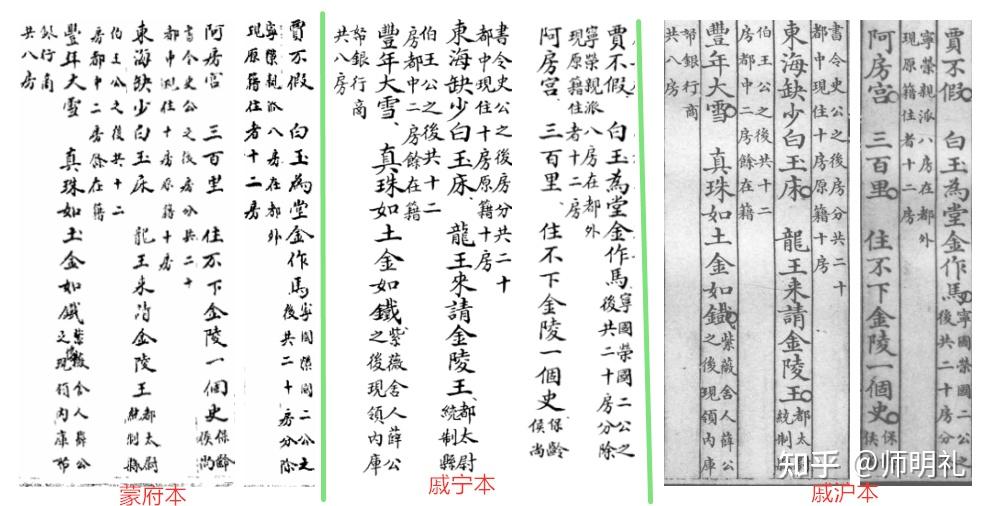 賈不假 白玉為堂金作馬
寧國榮國二公之
後共二十房分除
寧榮親派八房在都外
現原籍住者十二房
阿房宮 三百里 住不下金陵一個史
保齡
侯尚
書令史公之後房分共二十
都中現住十房原籍十房
東海缺少白玉床 龍王来請金陵王
都太尉
統制縣
伯王公之後共十二
房都中二房餘在籍
豐年大雪 真珠如土金如鐵
紫薇舍人薛公
之後現領內庫帑
銀行商
共八房
蒙府本
賈不假、白玉為堂金作馬
寧國榮國二公之
後共二十房分除
寧榮親派八房在都外
現原籍住者十二房
阿房宮、三百里、住不下金陵一個史
保齡
侯尚
書令史公之後房分共二十
都中現住十房原籍十房
東海缺少白玉床、龍王来請金陵王
都太尉
統制縣
伯王公之後共十二
房都中二房餘在籍
豐年大雪、真珠如土金如鐵
紫薇舍人薛公
之後現領內庫
帑銀行商
共八房
戚宁本
賈不假 白玉為堂金作馬
寧國榮國二公之
後共二十房分除
寧榮親派八房在都外
現原籍住者十二房
阿房宮 三百里 住不下金陵一個史
保齡
侯尚
書令史公之後房分共二十
都中現住十房原籍十房
東海缺少白玉床 龍王来請金陵王
都太尉
統制縣
伯王公之後共十二
房都中二房餘在籍
豐年大雪 真珠如土金如鐵
紫薇舍人薛公
之後現領內庫
帑銀行商
共八房
戚沪本
知乎 @师明礼